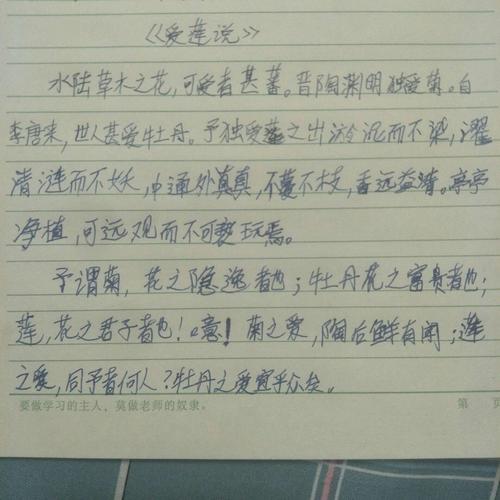 《爱莲说》
水陆草木之花，可爱者甚蕃。晋陶渊明独爱菊。自
李唐来，世人甚爱牡丹。予独爱莲之出淤泥而不染，濯
清涟而不妖，中通外真真，不蔓不枝，香远益清。亭亭
净植，可远观而不可亵玩焉。
予谓菊，花之隐逸者也；牡丹花之富贵者也；
莲，花之君子者也！噫！菊之爱，陶后鲜有闻；莲
之爱，同予者何人？牡丹之爱宜乎众矣。
要做学习的主人，莫做老师的奴隶。 第 页